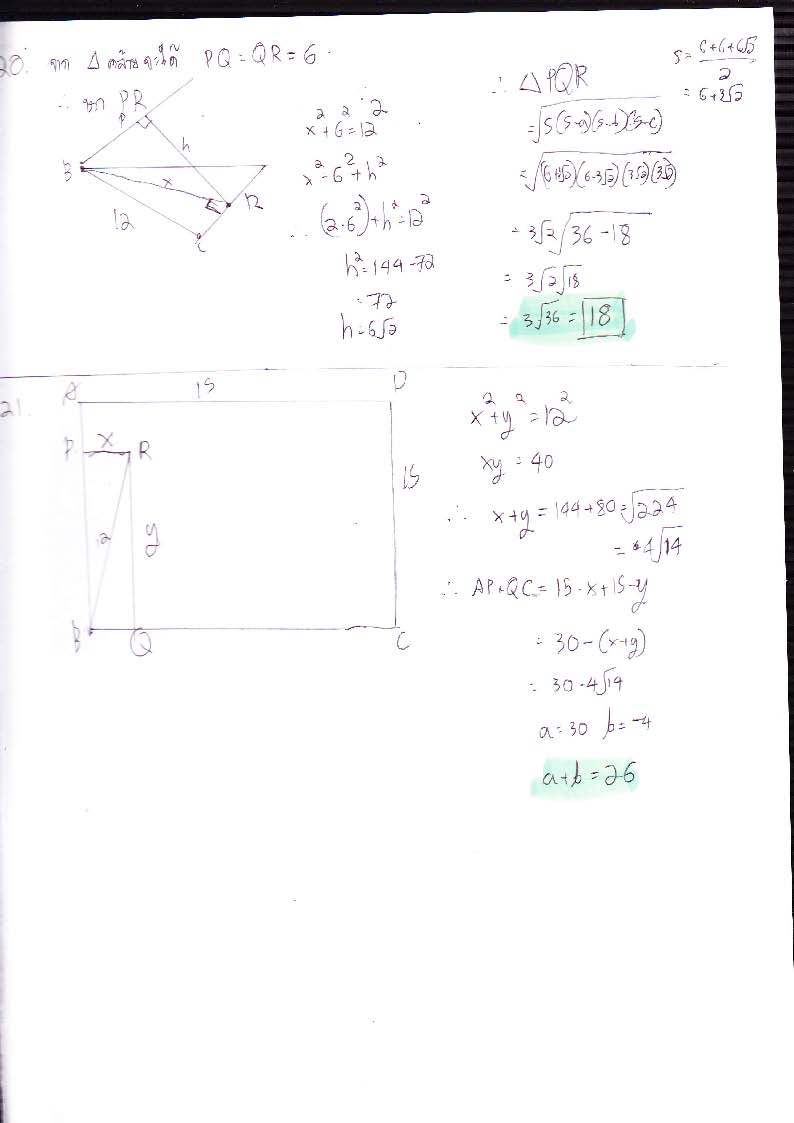 20. จาก Δ คล้ายจะได้ PQ = QR = 6
∴ หา PR
P
h
B
x
R
12
C
x² + 6² = 12²
x² = 6² + h²
∴ (2·6²) + h² = 12²
h² = 144 - 72
= 72
h = 6√2
∴ Δ PQR
= √S(S-a)(S-b)(S-c)
= √(6+3√2)(6-3√2)(3√2)(3√2)
= 3√2 √36 - 18
= 3√2 √18
= 3√36 = 18
S = 6+6+6√2
2
= 6+3√2
21.
A 15 D
P x R
15
12 y
B Q C
x² + y² = 12²
xy = 40
∴ x+y = 144+80 = √224
= 4√14
∴ AP+QC = 15-x+15-y
= 30-(x+y)
= 30-4√14
a = 30 b = -4
a+b = 26